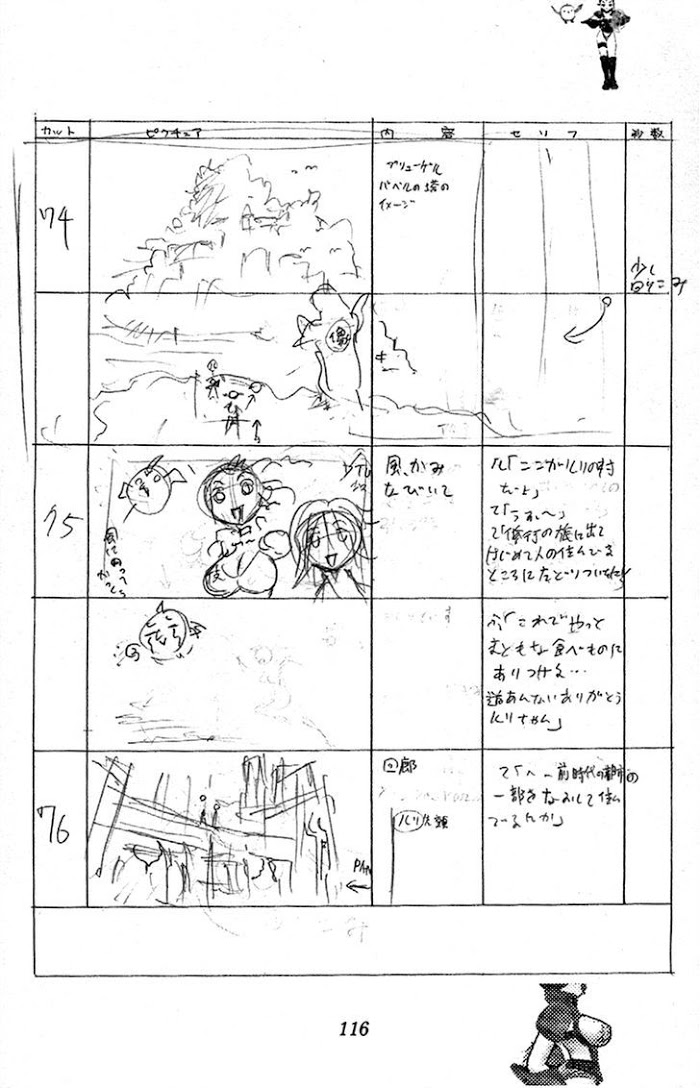 カット ピクチュア 内容 セリフ 秒数
74
ブリューゲル
バベルの塔の
イメージ
少し
像
75
風、かみ
なびいて
ル「ここがルリの村
だよ」
て「うわ〜」
て「修行の旅に出て
はじめて人の住んでいる
ところにたどりついた」
ふ「これでやっと
まともな食べものに
ありつける…
道あんないありがとう
ルリちゃん」
76
回廊
ルリ先頭
PAN
て「へー前時代の都市の
一部をなおして住ん
でいるんか」
116